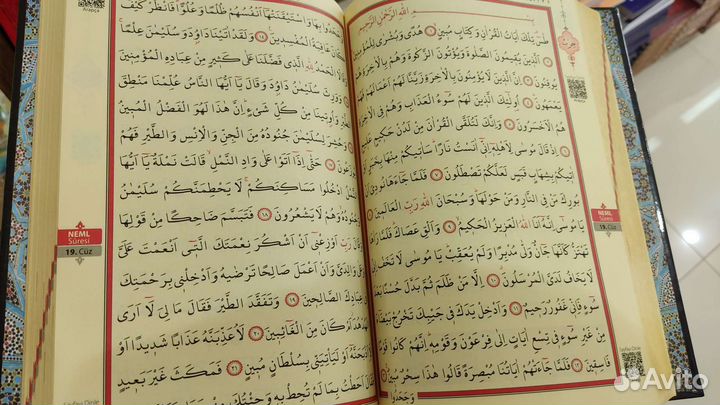 بِسْمِ اللّٰهِ الرَّحْمٰنِ الرَّحِيمِ
طٰسٓ تِلْكَ اٰيَاتُ الْقُرْاٰنِ وَكِتَابٍ مُبِينٍ ١ هُدًى وَبُشْرٰى لِلْمُؤْمِنِينَ ٢
اَلَّذِينَ يُقِيمُونَ الصَّلٰوةَ وَيُؤْتُونَ الزَّكٰوةَ وَهُمْ بِالْاٰخِرَةِ هُمْ
يُوقِنُونَ ٣ اِنَّ الَّذِينَ لَا يُؤْمِنُونَ بِالْاٰخِرَةِ زَيَّنَّا لَهُمْ اَعْمَالَهُمْ فَهُمْ
يَعْمَهُونَ ٤ اُو۬لٰٓئِكَ الَّذِينَ لَهُمْ سُٓوءُ الْعَذَابِ وَهُمْ فِي الْاٰخِرَةِ
هُمُ الْاَخْسَرُونَ ٥ وَاِنَّكَ لَتُلَقَّى الْقُرْاٰنَ مِنْ لَدُنْ حَكِيمٍ عَلِيمٍ
٦ اِذْ قَالَ مُوسٰى لِاَهْلِهٓ اِنّٓي اٰنَسْتُ نَارًا سَاٰتِيكُمْ مِنْهَا بِخَبَرٍ اَوْ
اٰتِيكُمْ بِشِهَابٍ قَبَسٍ لَعَلَّكُمْ تَصْطَلُونَ ٧ فَلَمَّا جَٓاءَهَا نُودِيَ اَنْ
بُورِكَ مَنْ فِي النَّارِ وَمَنْ حَوْلَهَا وَسُبْحَانَ اللّٰهِ رَبِّ الْعَالَمِينَ ٨
يَا مُوسٰٓى اِنَّهُٓ اَنَا اللّٰهُ الْعَزِيزُ الْحَكِيمُ ٩ وَاَلْقِ عَصَاكَ فَلَمَّا رَاٰهَا
تَهْتَزُّ كَاَنَّهَا جَٓانٌّ وَلّٰى مُدْبِرًا وَلَمْ يُعَقِّبْ يَا مُوسٰى لَا تَخَفْ اِنّٓي
لَا يَخَافُ لَدَيَّ الْمُرْسَلُونَ ١٠ اِلَّا مَنْ ظَلَمَ ثُمَّ بَدَّلَ حُسْنًا بَعْدَ
سُٓوءٍ فَاِنّٓي غَفُورٌ رَحِيمٌ ١١ وَاَدْخِلْ يَدَكَ فِي جَيْبِكَ تَخْرُجْ بَيْضَٓاءَ
مِنْ غَيْرِ سُٓوءٍ فِي تِسْعِ اٰيَاتٍ اِلٰى فِرْعَوْنَ وَقَوْمِهٖ اِنَّهُمْ كَانُوا قَوْمًا
فَاسِقِينَ ١٢ فَلَمَّا جَٓاءَتْهُمْ اٰيَاتُنَا مُبْصِرَةً قَالُوا هٰذَا سِحْرٌ مُبِينٌ
وَجَحَدُوا
NEML
Sûresi
19. Cüz
وَجَحَدُوا بِهَا وَاسْتَيْقَنَتْهَٓا اَنْفُسُهُمْ ظُلْمًا وَعُلُوًّا فَانْظُرْ كَيْفَ
كَانَ عَاقِبَةُ الْمُفْسِدِينَ ١٤ وَلَقَدْ اٰتَيْنَا دَاوُ۫دَ وَسُلَيْمٰنَ عِلْمًا
وَقَالَا الْحَمْدُ لِلّٰهِ الَّذِي فَضَّلَنَا عَلٰى كَثِيرٍ مِنْ عِبَادِهِ الْمُؤْمِنِينَ
١٥ وَوَرِثَ سُلَيْمٰنُ دَاوُ۫دَ وَقَالَ يَٓا اَيُّهَا النَّاسُ عُلِّمْنَا مَنْطِقَ
الطَّيْرِ وَاُو۫تِينَا مِنْ كُلِّ شَيْءٍ اِنَّ هٰذَا لَهُوَ الْفَضْلُ الْمُبِينُ
١٦ وَحُشِرَ لِسُلَيْمٰنَ جُنُودُهُ مِنَ الْجِنِّ وَالْاِنْسِ وَالطَّيْرِ فَهُمْ
يُوزَعُونَ ١٧ حَتّٰٓى اِذَٓا اَتَوْا عَلٰى وَادِ النَّمْلِ قَالَتْ نَمْلَةٌ يَٓا اَيُّهَا
النَّمْلُ ادْخُلُوا مَسَاكِنَكُمْ لَا يَحْطِمَنَّكُمْ سُلَيْمٰنُ
وَجُنُودُهُ وَهُمْ لَا يَشْعُرُونَ ١٨ فَتَبَسَّمَ ضَاحِكًا مِنْ قَوْلِهَا
وَقَالَ رَبِّ اَوْزِعْنٓي اَنْ اَشْكُرَ نِعْمَتَكَ الَّتٓي اَنْعَمْتَ عَلَيَّ
وَعَلٰى وَالِدَيَّ وَاَنْ اَعْمَلَ صَالِحًا تَرْضٰيهُ وَاَدْخِلْنِي بِرَحْمَتِكَ
فِي عِبَادِكَ الصَّالِحِينَ ١٩ وَتَفَقَّدَ الطَّيْرَ فَقَالَ مَا لِيَ لَٓا اَرَى
الْهُدْهُدَ اَمْ كَانَ مِنَ الْغَٓائِبِينَ ٢٠ لَاُعَذِّبَنَّهُ عَذَابًا شَدِيدًا اَوْ
لَاَاذْبَحَنَّهُٓ اَوْ لَيَأْتِيَنّٓي بِسُلْطَانٍ مُبِينٍ ٢١ فَمَكَثَ غَيْرَ بَعِيدٍ
فَقَالَ اَحَطْتُ بِمَا لَمْ تُحِطْ بِهٖ وَجِئْتُكَ
NEML
Sûresi
19. Cüz
Sayfayı Dinle
Avito